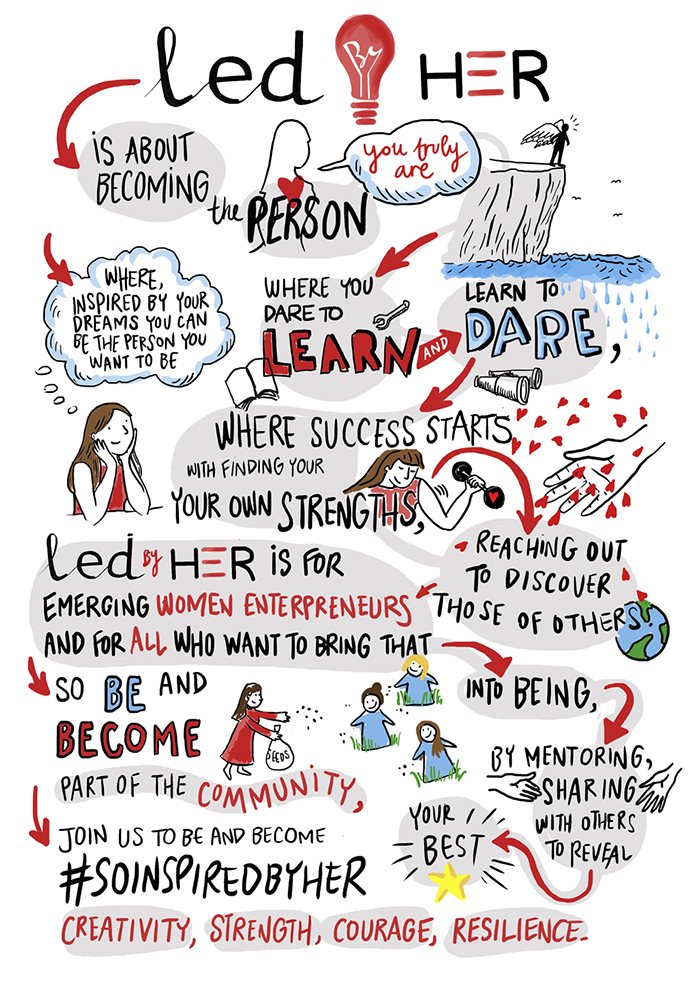 led By HER
IS ABOUT
BECOMING
the PERSON
you truly
are
WHERE,
INSPIRED BY YOUR
DREAMS YOU CAN
BE THE PERSON YOU
WANT TO BE
WHERE YOU
DARE TO
LEARN AND
LEARN TO
DARE,
WHERE SUCCESS STARTS
WITH FINDING YOUR
YOUR OWN STRENGTHS,
REACHING OUT
TO DISCOVER
THOSE OF OTHERS
led BY HER IS FOR
EMERGING WOMEN ENTERPRENEURS
AND FOR ALL WHO WANT TO BRING THAT
INTO BEING,
BY MENTORING,
SHARING
WITH OTHERS
TO REVEAL
YOUR
BEST
SO BE AND
BECOME
SEEDS
PART OF THE COMMUNITY,
JOIN US TO BE AND BECOME
#SOINSPIREDBYHER
CREATIVITY, STRENGTH, COURAGE, RESILIENCE.